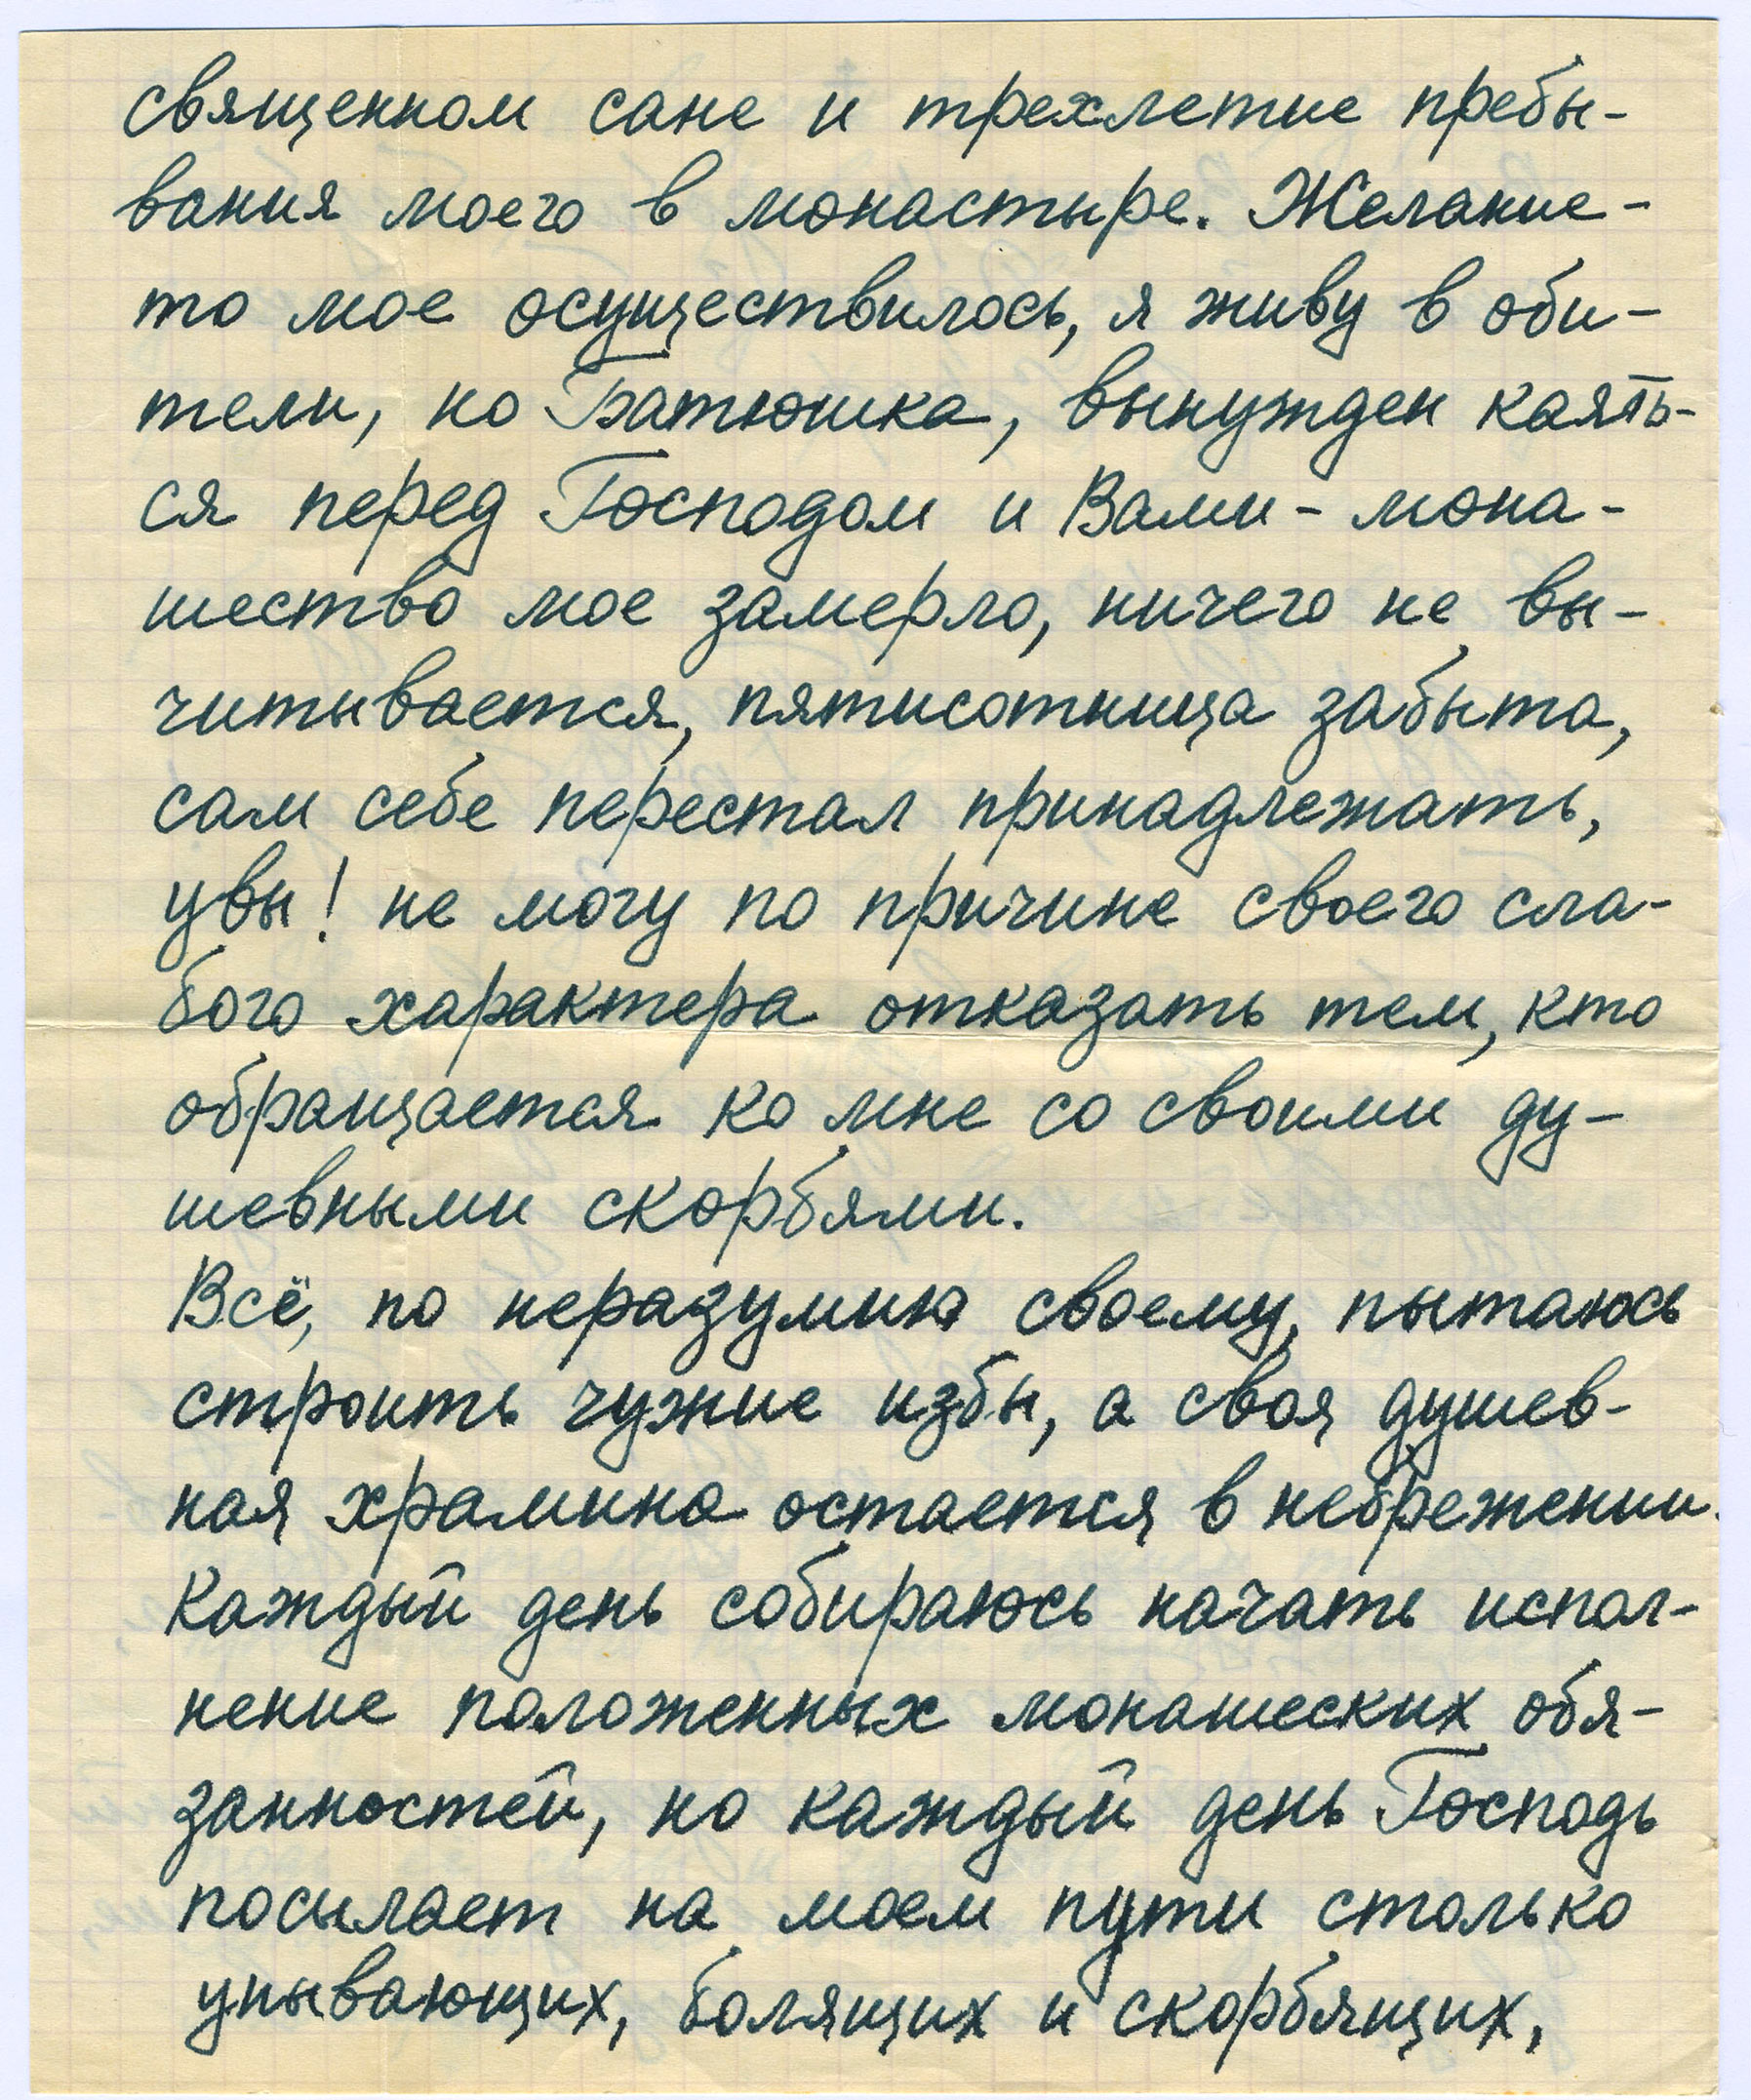 священном сане и трехлетие пребы-
вания моего в монастыре. Желание-
то мое осуществилось, я живу в оби-
тели, но Батюшка, вынужден каять-
ся перед Господом и Вами - мона-
шество мое замерло, ничего не вы-
читывается, пятисотница забыта,
сам себе перестал принадлежать,
увы! не могу по причине своего сла-
бого характера отказать тем, кто
обращается ко мне со своими ду-
шевными скорбями.
Всё, по неразумию своему, пытаюсь
строить чужие избы, а своя душев-
ная храмина остается в небрежении.
Каждый день собираюсь начать испол-
нение положенных монашеских обя-
занностей, но каждый день Господь
посылает на моем пути столько
унывающих, болящих и скорбящих,